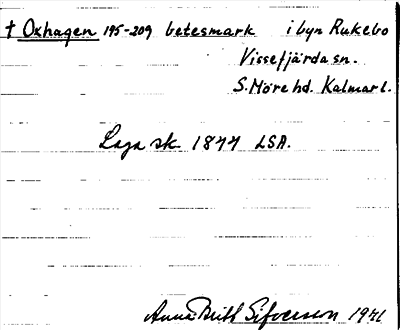 † Oxhagen 195-209 betesmark i byn Rukebo
Vissefjärda sn.
S. Möre hd. Kalmar l.
Laga sk. 1877 LSA.
Anna Britt Sifversson 1941